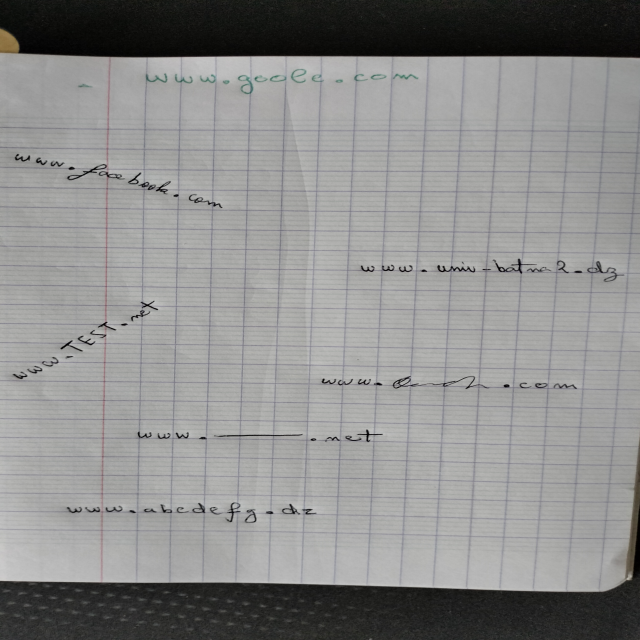 - www.goole.com
www.facebook.com
www.univ-batna2.dz
www.TEST.net
www. .com
www.———.net
www.abcdefg.dz